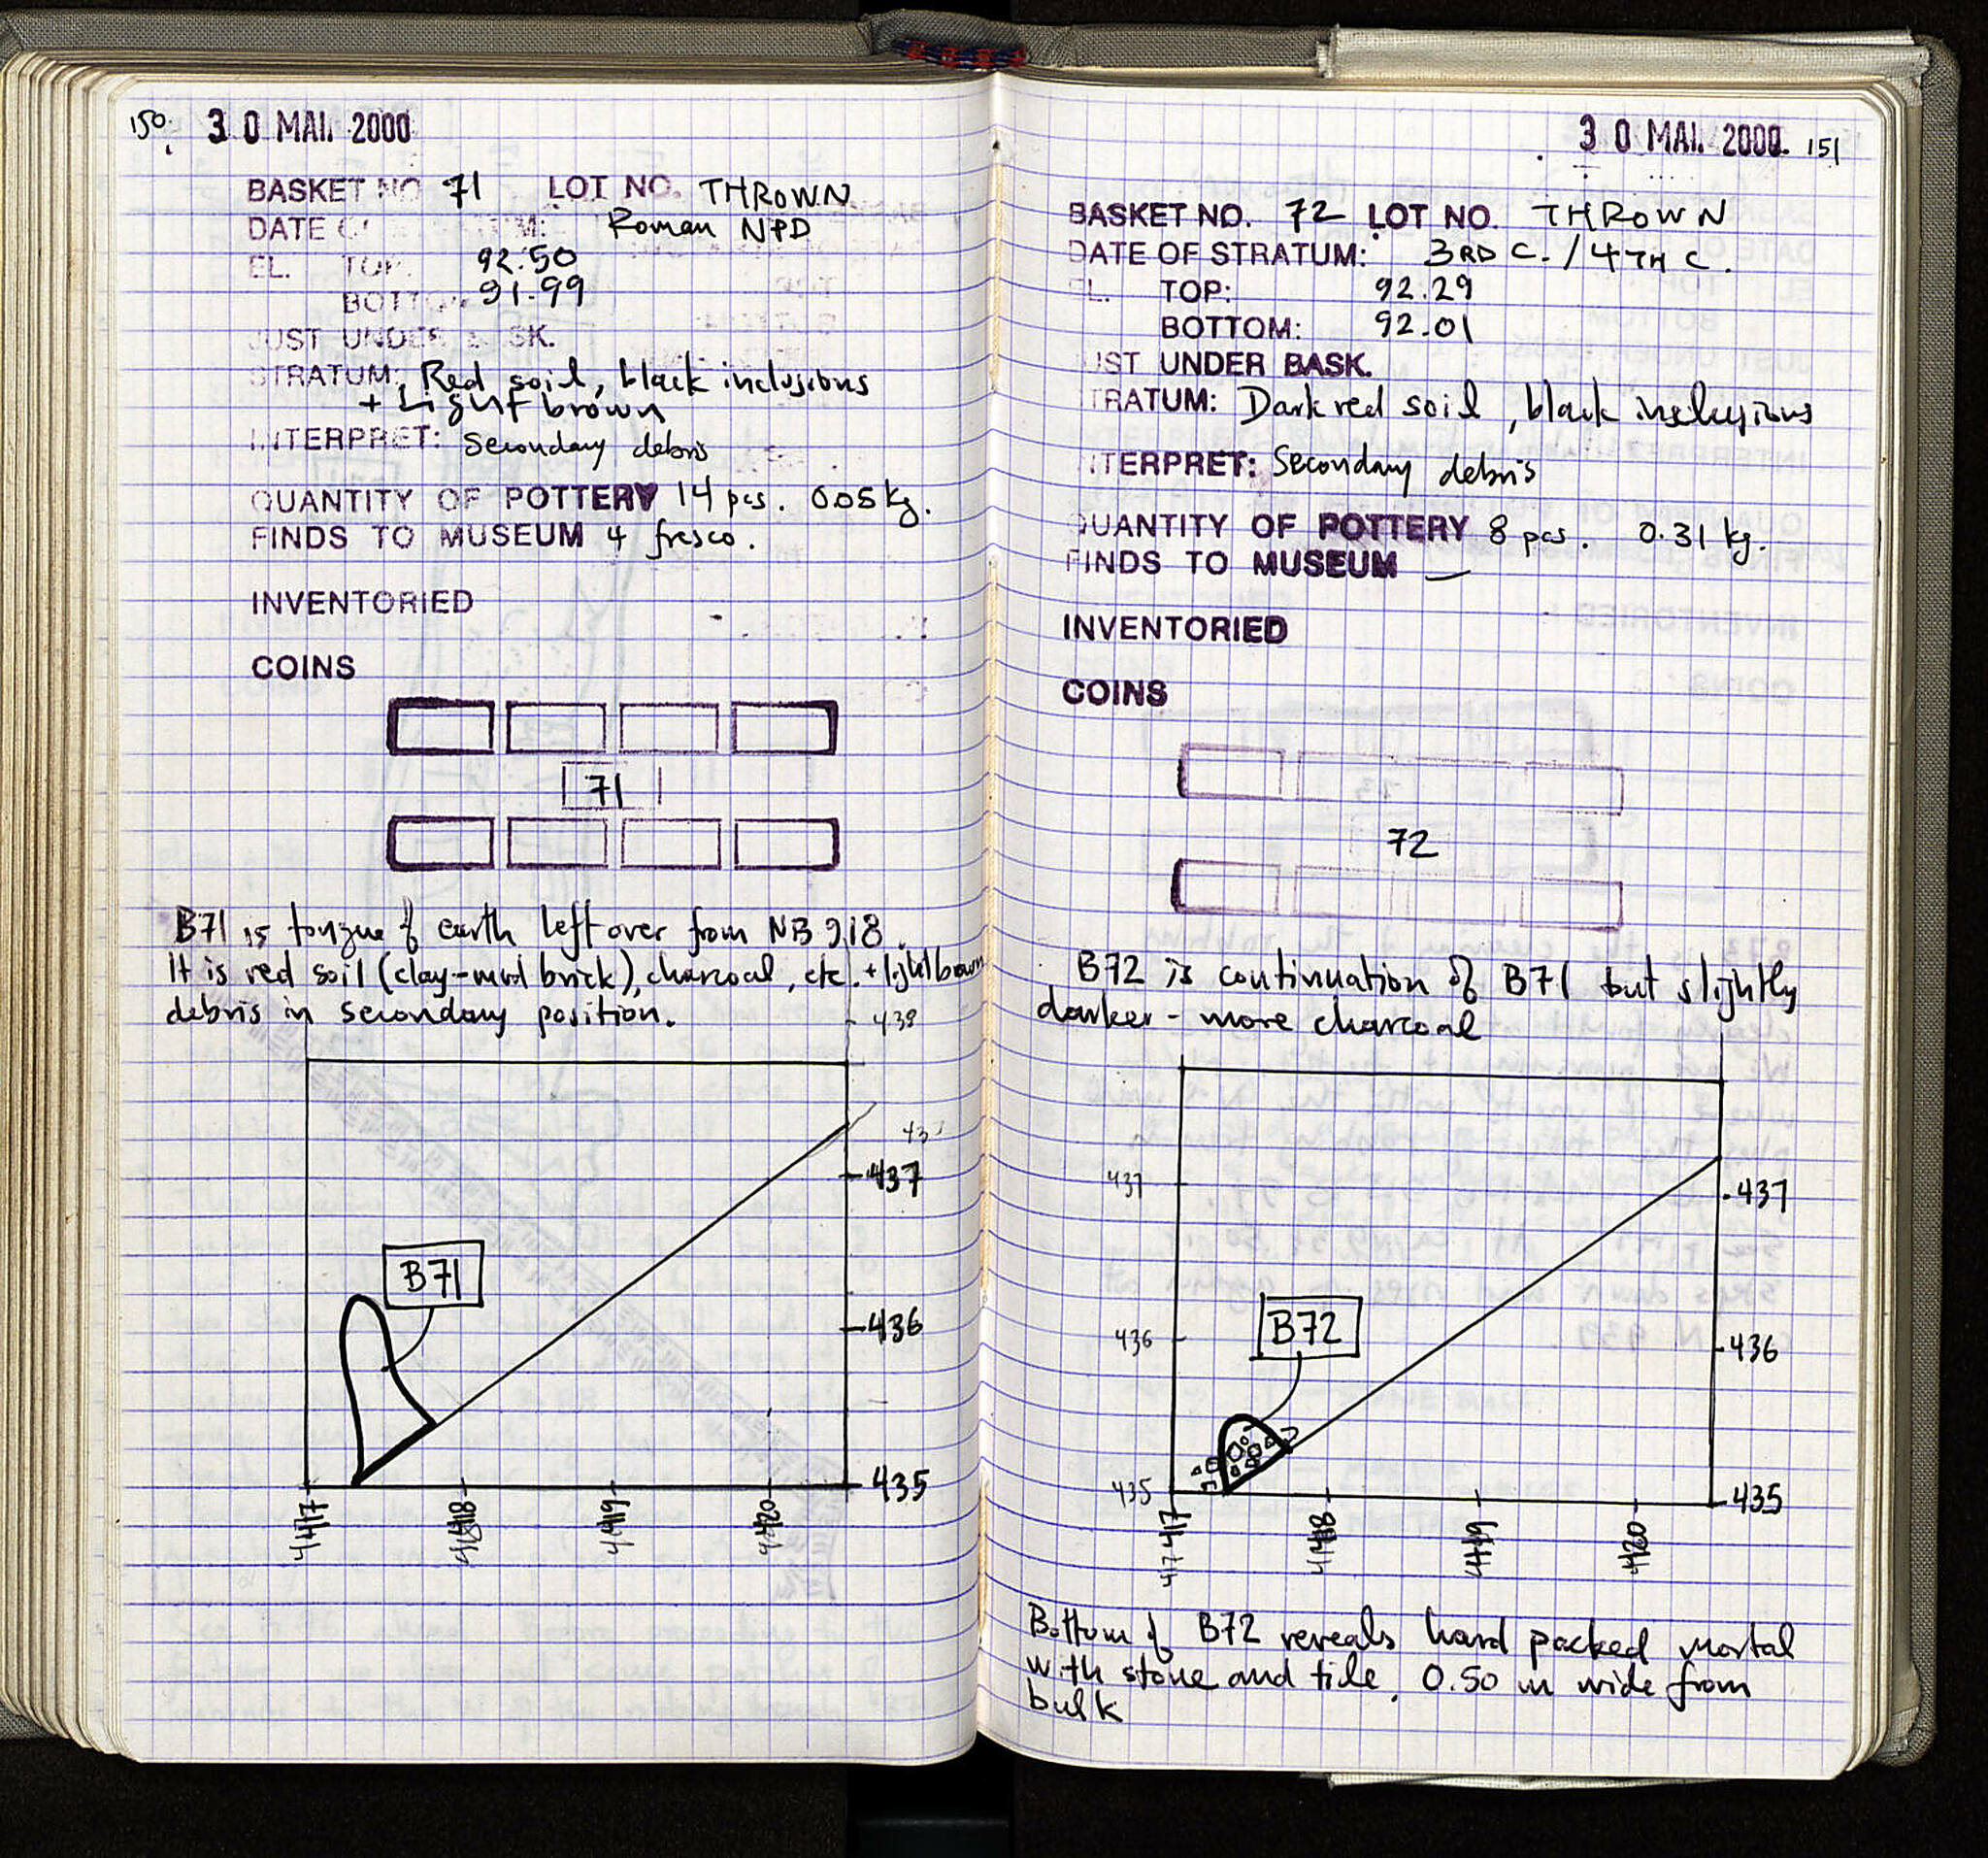 150.
3 0 MAI. 2000
BASKET NO 71 LOT NO. THROWN
DATE OF STRATUM: Roman NPD
EL. TOP: 92.50
BOTTOM 91.99
JUST UNDER BASK.
STRATUM: Red soil, black inclusions
+ Light brown
INTERPRET: Secondary debris
QUANTITY OF POTTERY 14 pcs. 0.05 kg.
FINDS TO MUSEUM 4 fresco.
INVENTORIED
COINS
71
B71 is tongue of earth left over from NB 918.
It is red soil (clay-mud brick), charcoal, etc. + light brown
debris in secondary position.
438
437
B71
436
435
4417 4418 4419 4420
3 0 MAI. 2000. 151
BASKET NO. 72 LOT NO. THROWN
DATE OF STRATUM: 3RD C. / 4TH C.
EL. TOP: 92.29
BOTTOM: 92.01
JUST UNDER BASK.
STRATUM: Dark red soil, black inclusions
INTERPRET: Secondary debris
QUANTITY OF POTTERY 8 pcs. 0.31 kg.
FINDS TO MUSEUM —
INVENTORIED
COINS
72
B72 is continuation of B71 but slightly
darker - more charcoal
437 437
B72
436 436
435 435
4417 4418 4419 4420
Bottom of B72 reveals hard packed mortal
with stone and tile, 0.50 m wide from
bulk